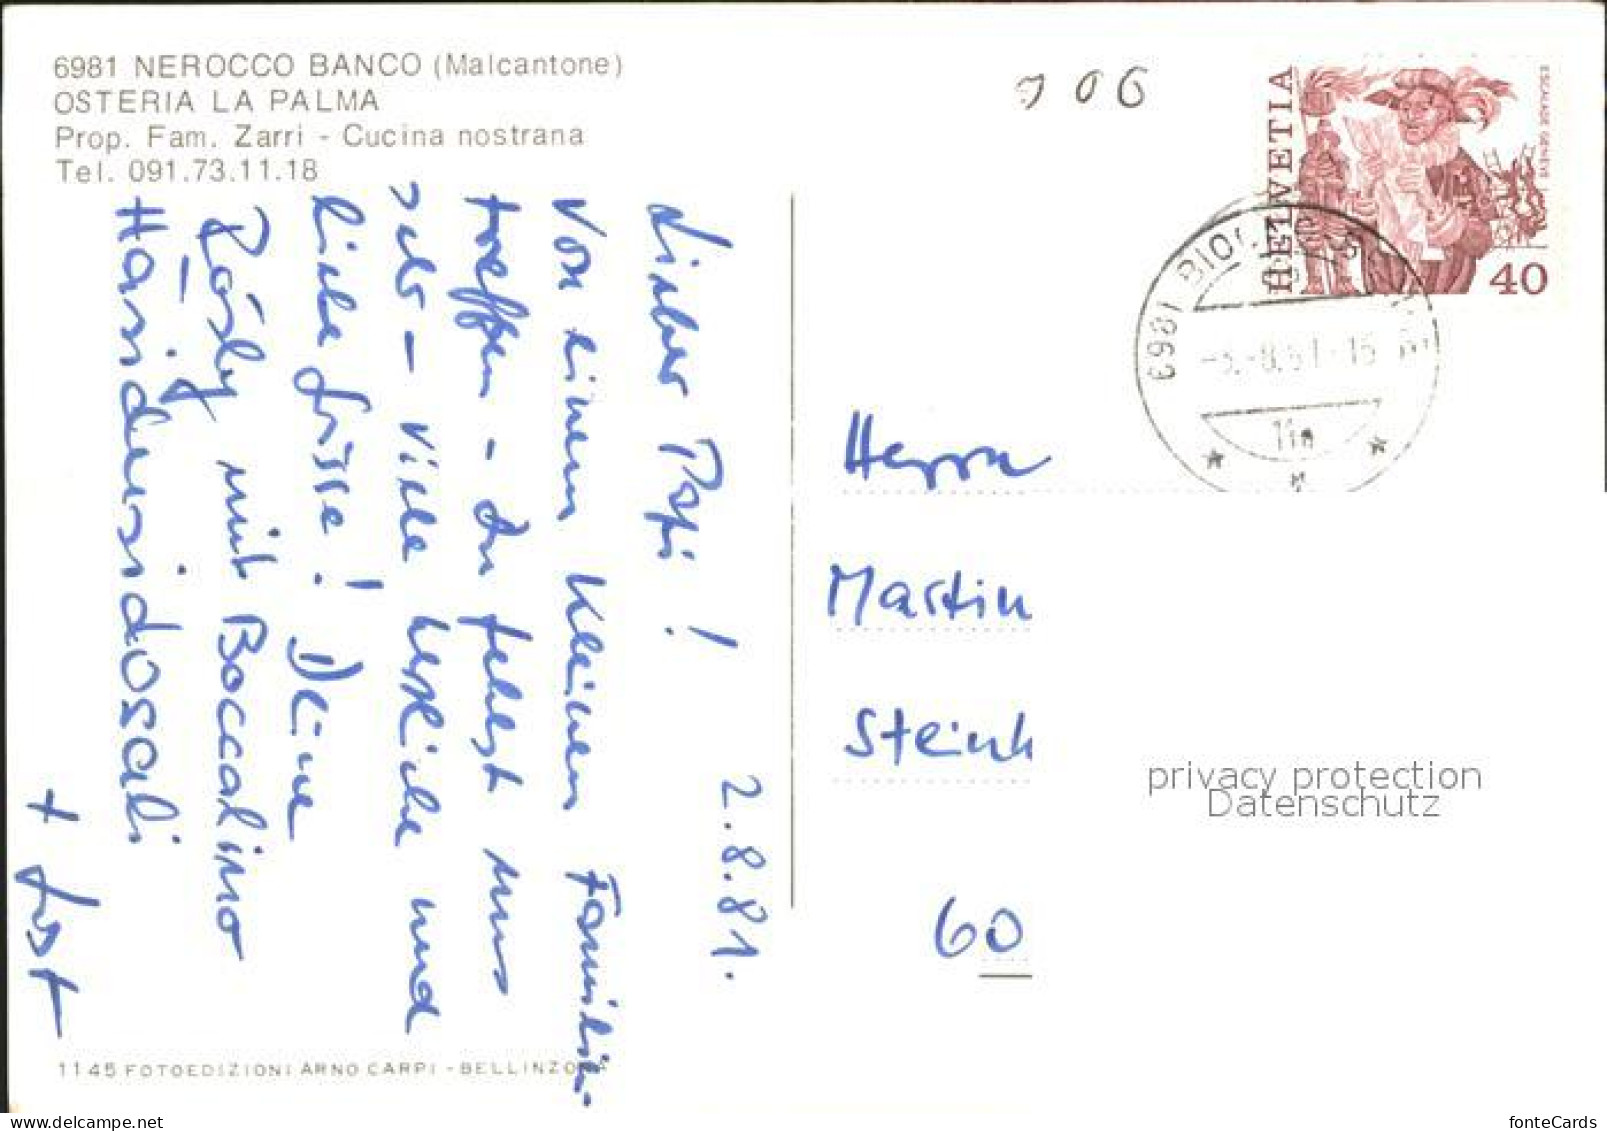 6981 NEROCCO BANCO (Malcantone)
OSTERIA LA PALMA
Prop. Fam. Zarri - Cucina nostrana
Tel. 091.73.11.18
HELVETIA
ESCALADE GENÈVE
40
6981 BIOGGIO
11a
2.8.81.
Lieber Papi!
Von einem kleinen Familien-
treffen - Du fehlst uns
sehr - viele herzliche und
liebe Grüsse! Deine
Rösly mit Boccalino
+ Jost
Herrn
Martin
Steinh
60
privacy protection
Datenschutz
1145 FOTOEDIZIONI ARNO CARPI - BELLINZONA
fonteCards